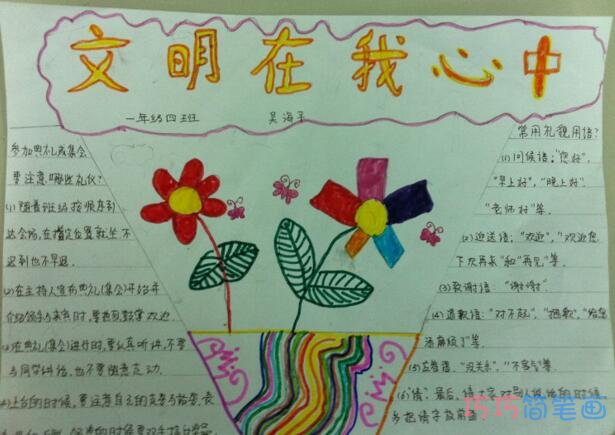 文明在我心中
一年级四班 吴海子
参加典礼或集会
要注意哪些礼仪?
(1)随着班级按顺序到
达会场,在指定位置就坐,不
迟到也不早退.
(2)在主持人宣布典礼(集会)开始并
介绍领导与来宾时,要热烈鼓掌欢迎
(3)在典礼(集会)进行时,要认真听讲,不要
与同学讲话,也不要随意走动.
(4)上台的时候,要注意自己的
常用礼貌用语?
(1)问候语:"您好".
"早上好","晚上好".
"老师好"等.
(2)迎送语:"欢迎","欢迎您
下次再来"和"再见"等.
(3)致谢语:"谢谢".
(4)道歉语:"对不起","抱歉","给您
添麻烦了"等.
(5)应答语:"没关系","不客气"等.
(6)"请":最后,请大家对别人说话的时候
多把请字放前面
巧巧简笔画